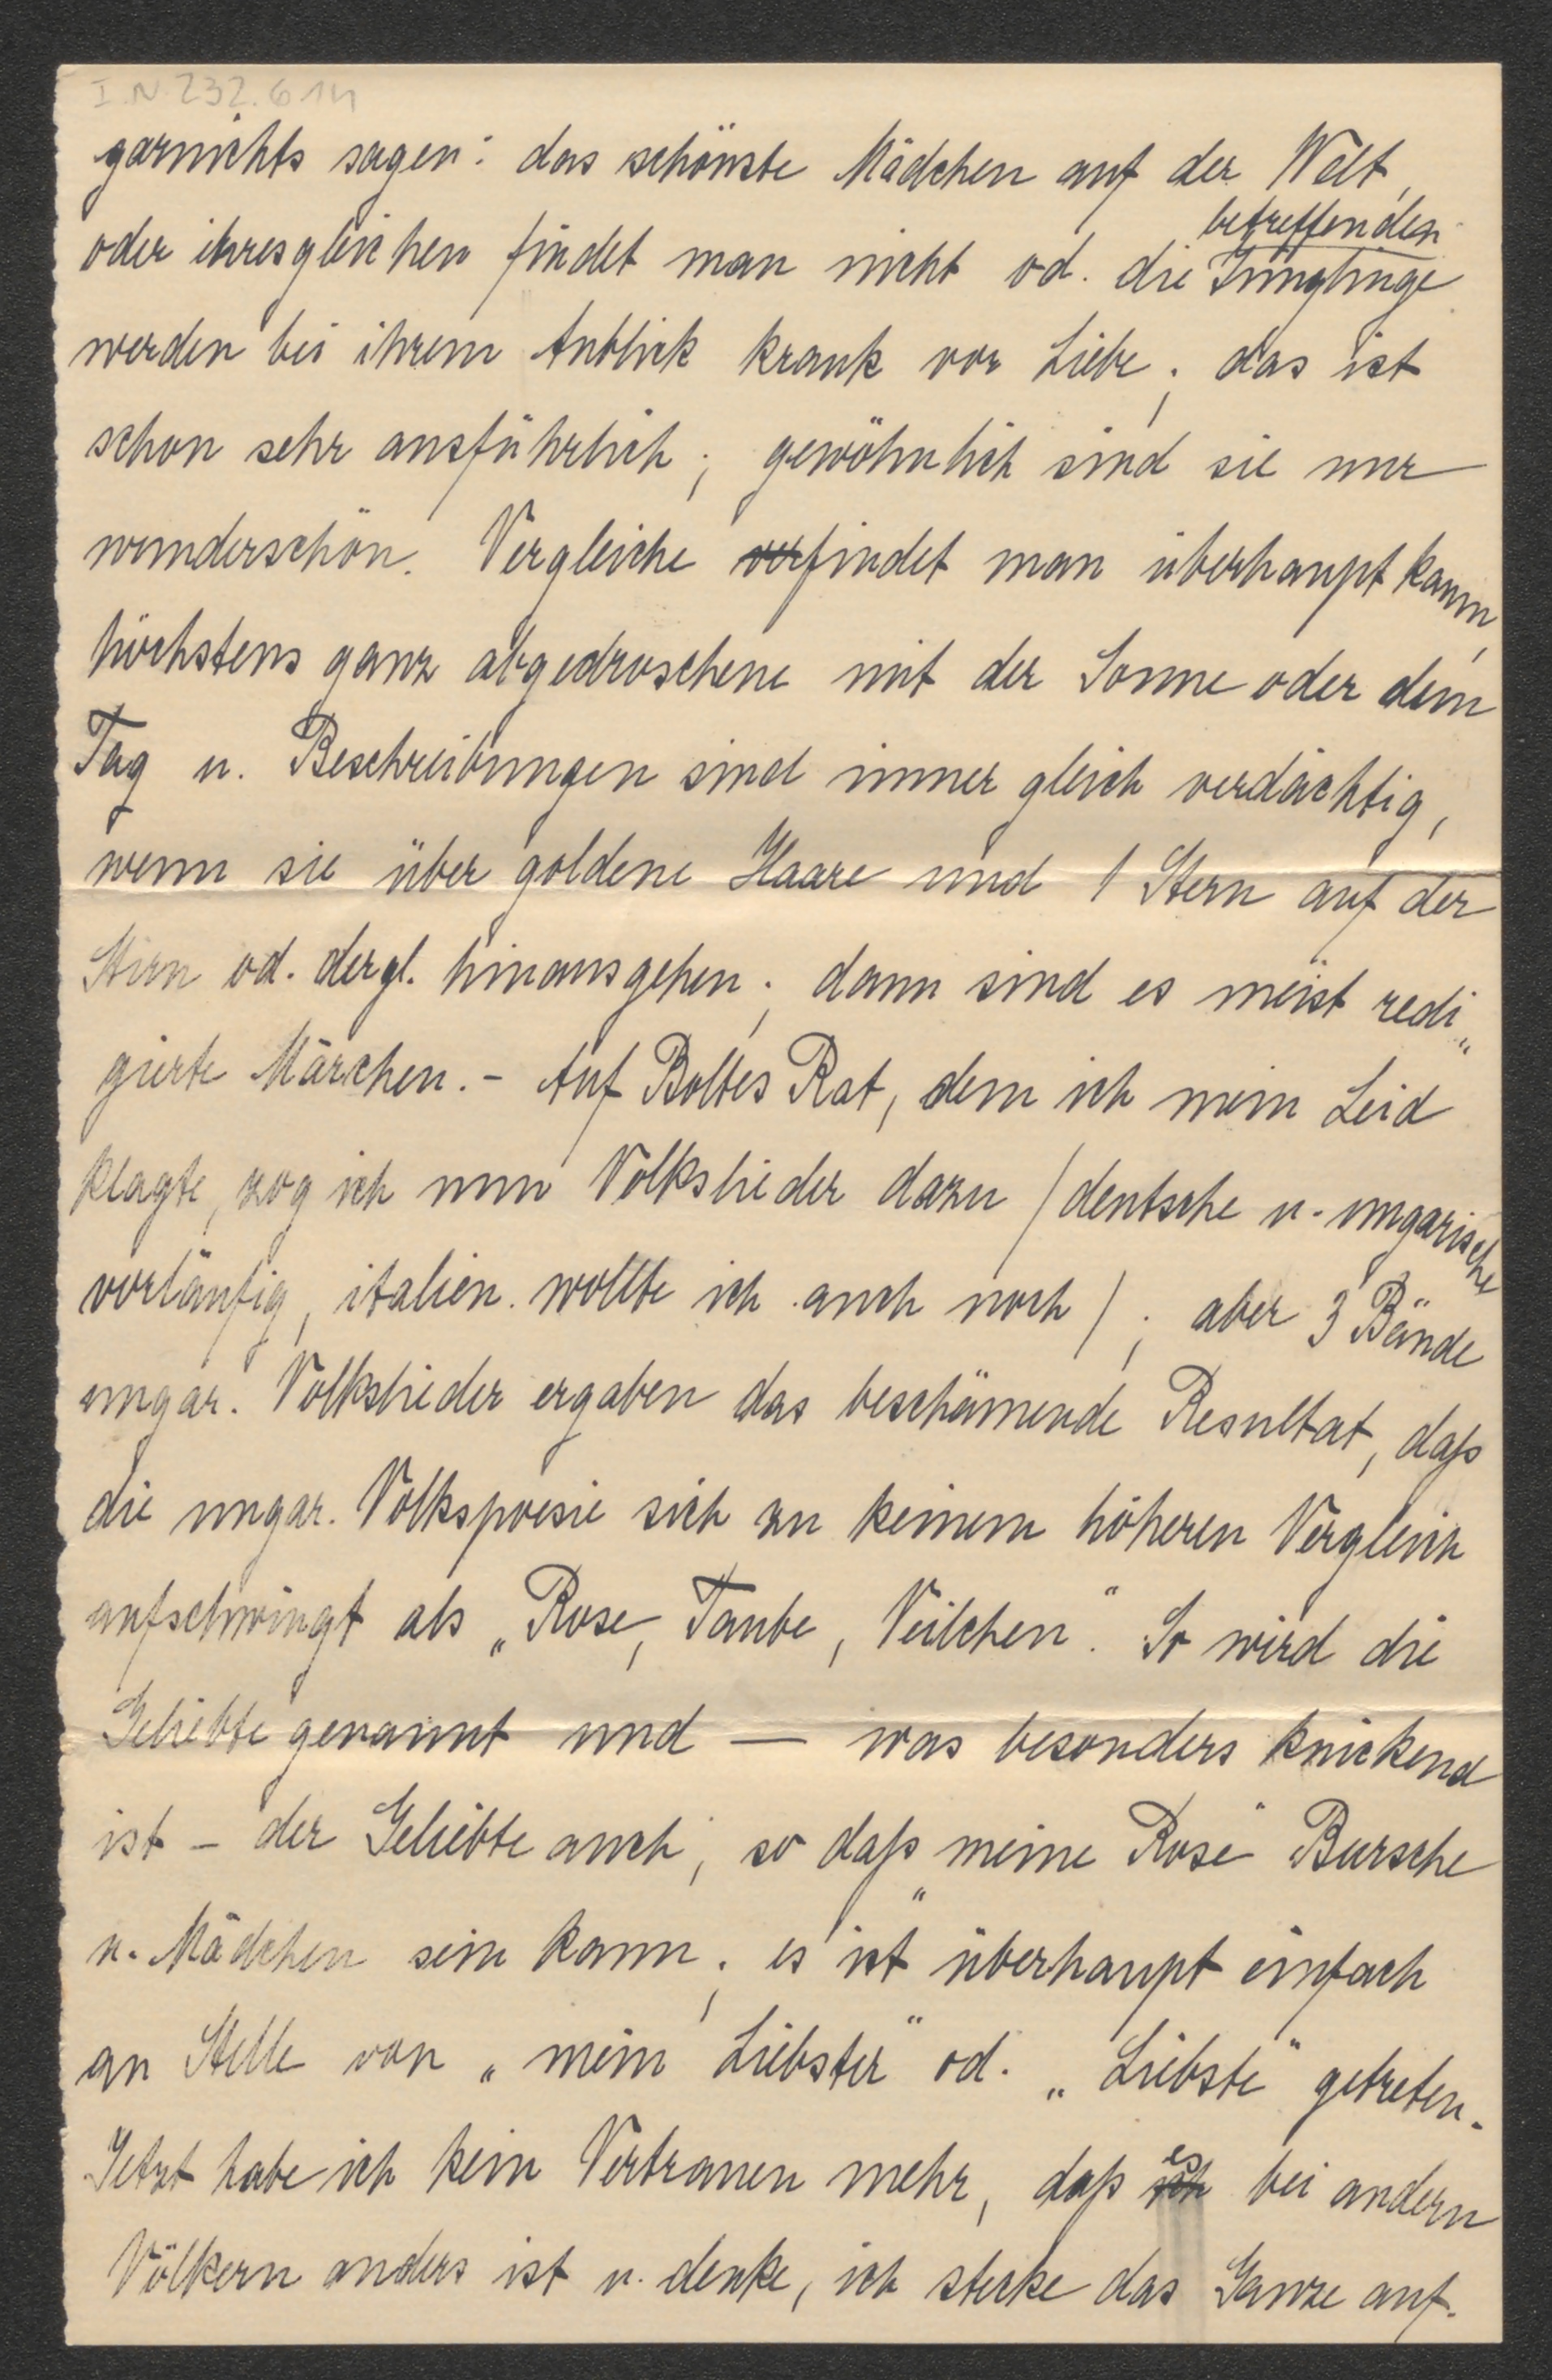 I.N 232.614
garnichts sagen: das schönste Mädchen auf der Welt,
oder ihresgleichen findet man nicht od. die betreffenden Jünglinge
werden bei ihrem Anblick krank vor Liebe; das ist
schon sehr ausführlich; gewöhnlich sind sie nur
wunderschön. Vergleiche ver findet man überhaupt kaum,
höchstens ganz abgedroschene mit der Sonne oder dem
Tag u. Beschreibungen sind immer gleich verdächtig,
wenn sie über goldene Haare und 1 Stern auf der
Stirn od. dergl. hinausgehen; dann sind es meist redi„
gierte Märchen. - Auf Boltes Rat, dem ich mein Leid
klagte, zog ich nun Volkslieder dazu /deutsche u. ungarische
vorläufig, italien. wollte ich auch noch/; aber 3 Bände
ungar. Volkslieder ergaben das beschämende Resultat, daß
die ungar. Volkspoesie sich zu keinem höheren Vergleich
aufschwingt als „Rose, Taube, Veilchen". So wird die
Geliebte genannt und — was besonders knickend
ist - der Geliebte auch, so daß „meine Rose" Bursche
u. Mädchen sein kann; es ist überhaupt einfach
an Stelle von „mein Liebster" od. „Liebste" getreten.
Jetzt habe ich kein Vertrauen mehr, daß ich es bei andern
Völkern anders ist u. denke, ich stecke das Ganze auf.